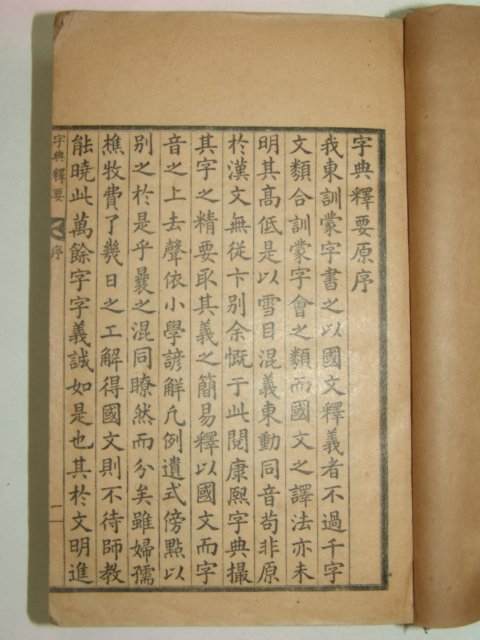 字典釋要原序
我東訓蒙字書之以國文釋義者不過千字
文類合訓蒙字會之類而國文之譯法亦未
明其高低是以雪目混義東動同音苟非原
於漢文無從卞別余慨于此閱康熙字典撮
其字之精要取其義之簡易釋以國文而字
音之上去聲依小學諺解凡例遺式傍點以
別之於是乎曩之混同瞭然而分矣雖婦孺
樵牧費了幾日之工解得國文則不待師敎
能曉此萬餘字字義誠如是也其於文明進
字典釋要
序
一